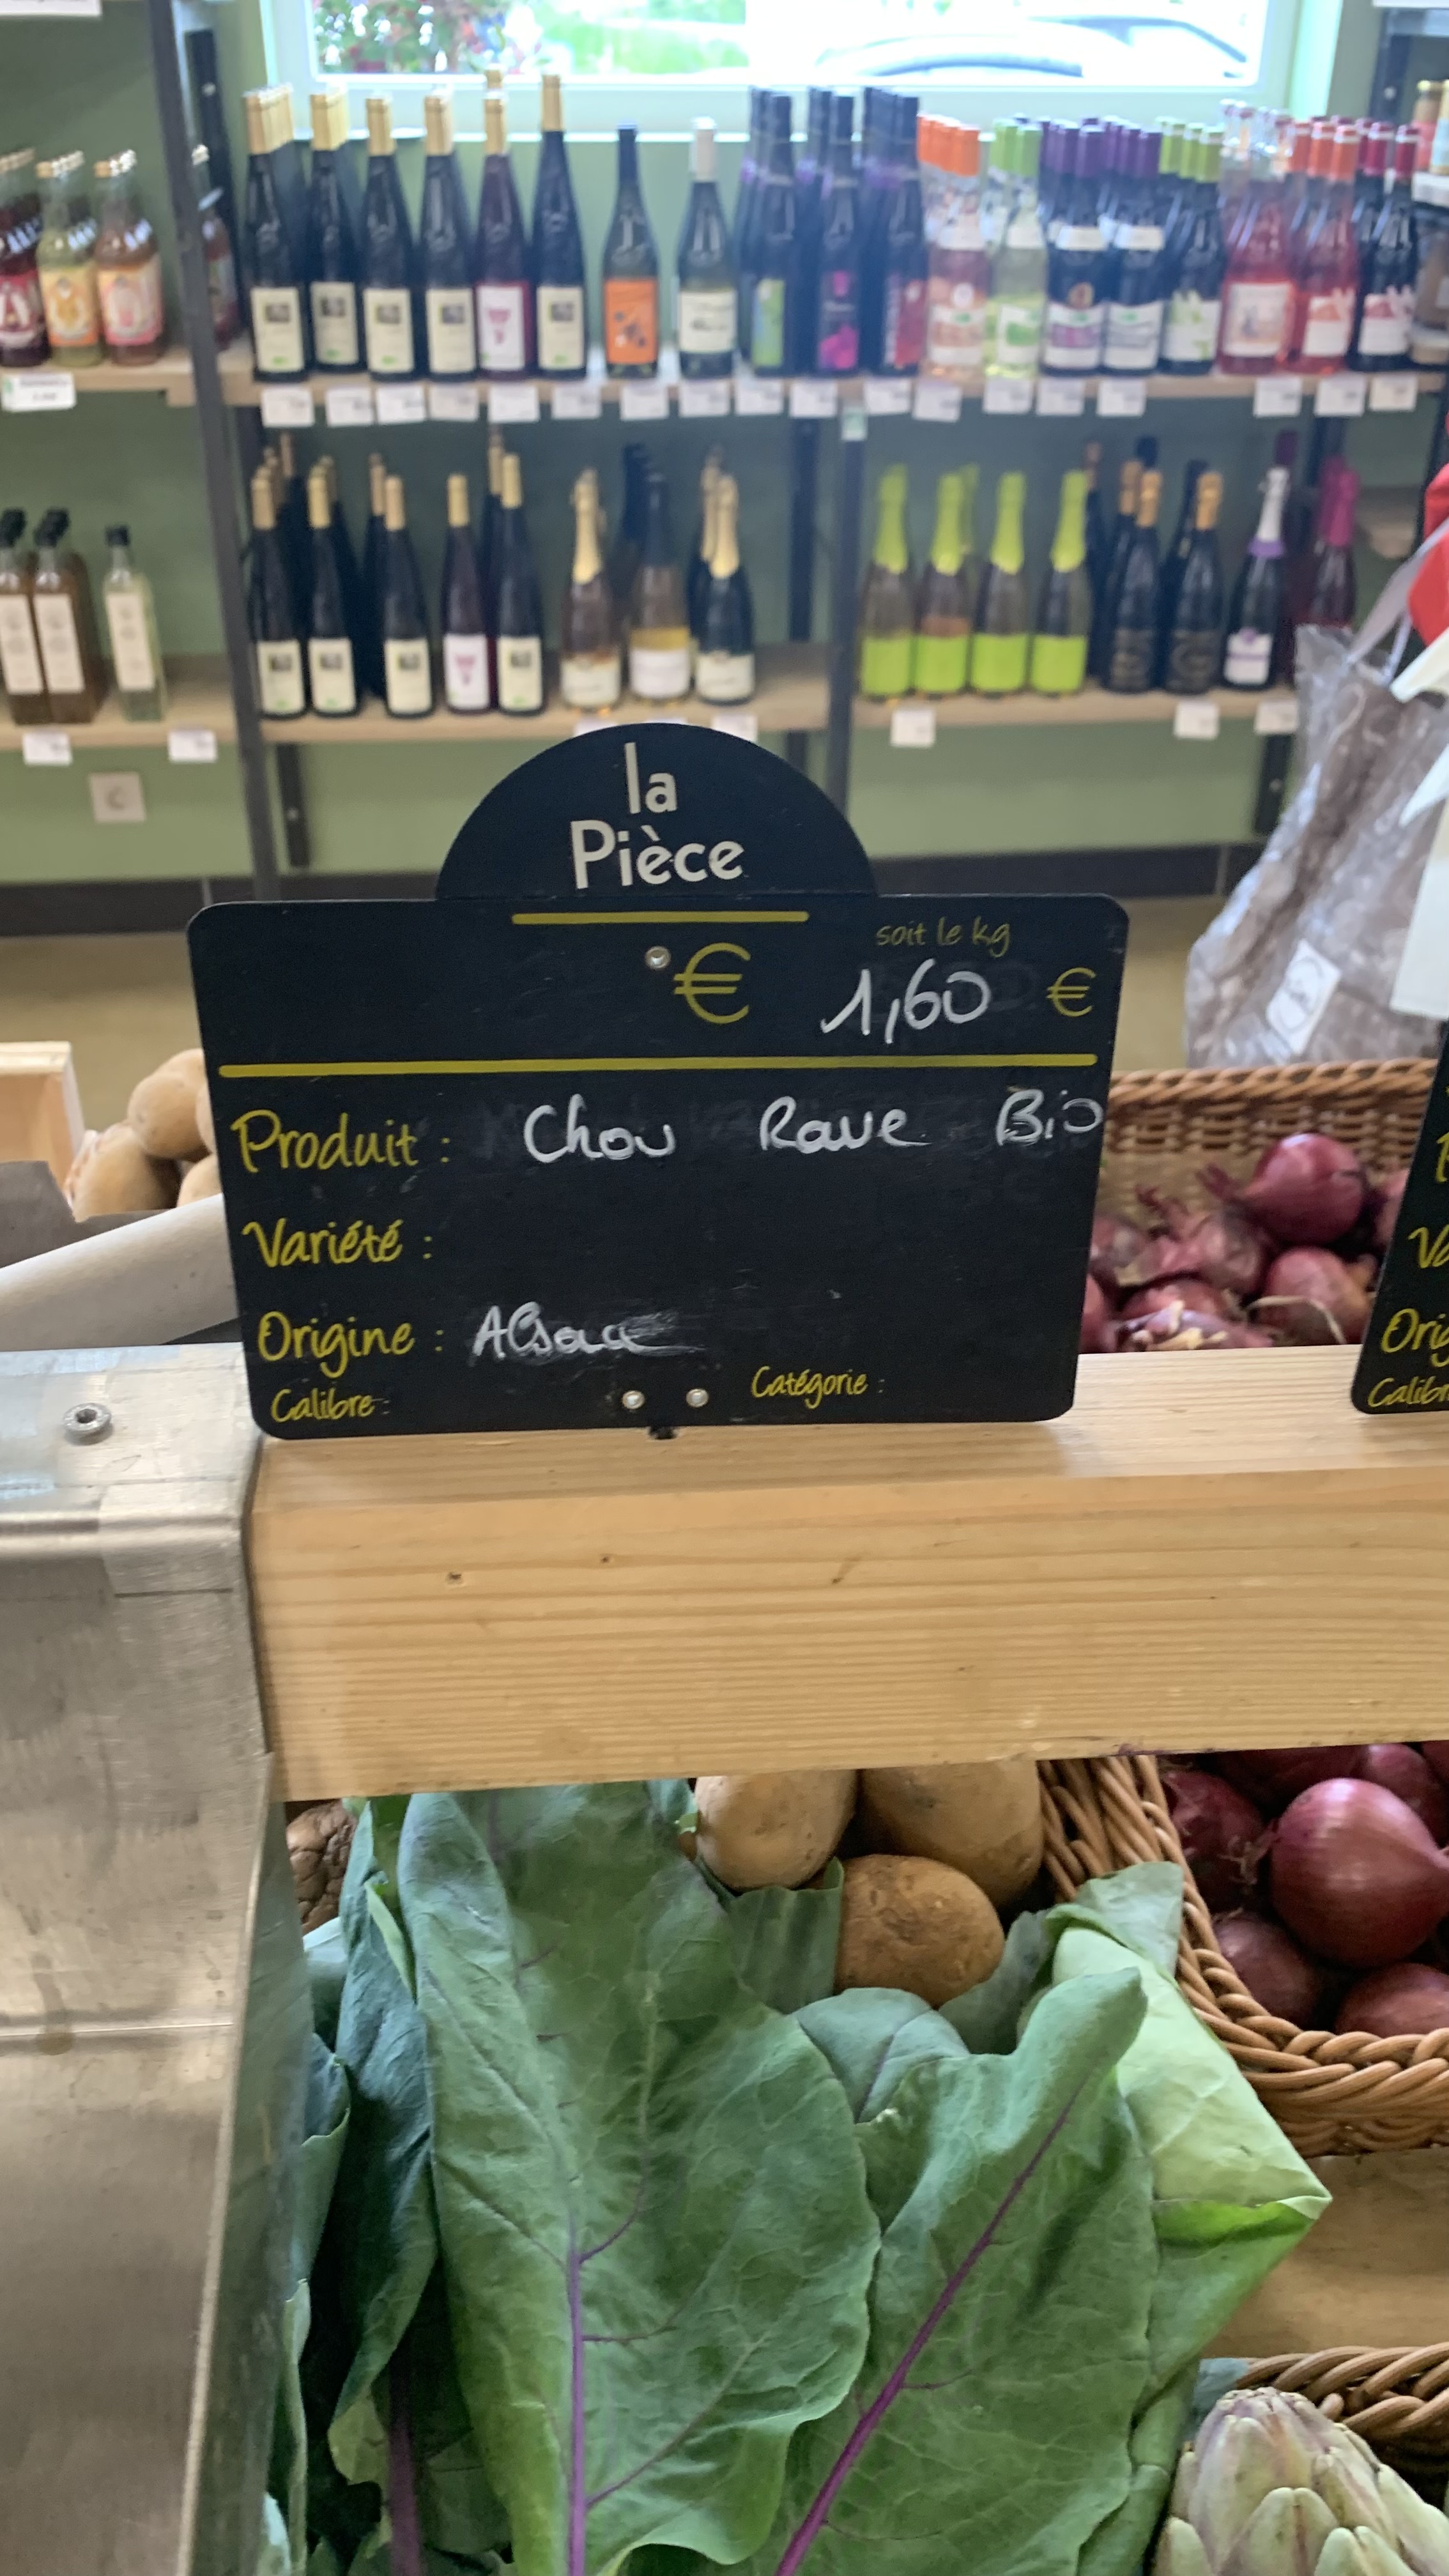 la
Pièce
soit le kg
€ 1,60 €
Produit : Chou Rave Bio
Variété :
Origine : Alsace
Calibre : Catégorie :
Orig
Calibr